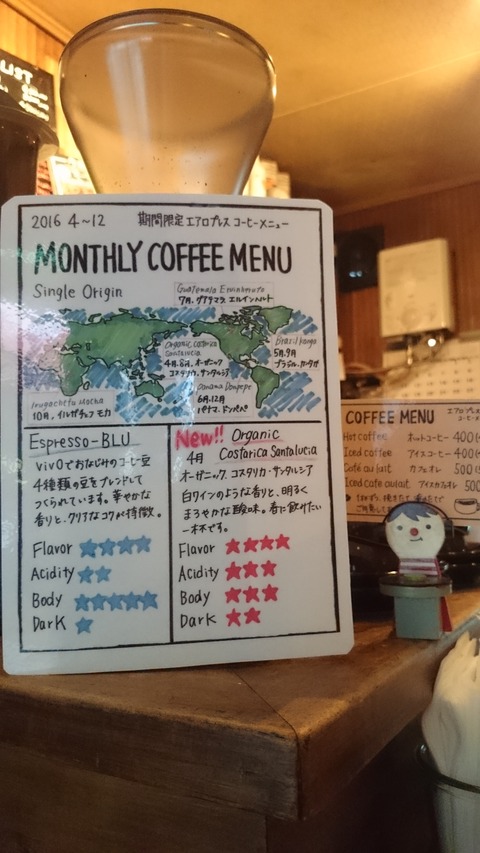 LIST
2016 4~12 期間限定 エアロプレス コーヒーメニュー
MONTHLY COFFEE MENU
Single Origin
Guatemala
7月, グアテマラ, エルインヘルト
Organic Costarica
Santalucia
4月.8月, オーガニック
コスタリカ・サンタルシア
Brazil
5月,9月
ブラジル,
Panama Donpepe
6月,12月
パナマ, ドンペペ
Irugachefu Mocha
10月, イルガチェフ モカ
Espresso-BLU
vivOでおなじみのコーヒー豆
4種類の豆をブレンドして
つくられています。華やかな
香りと、クリアなコクが特徴。
Flavor ★★★★
Acidity ★★
Body ★★★★★
Dark ★
New!! Organic
4月 Costarica Santalucia
オーガニック, コスタリカ・サンタルシア
白ワインのような香りと、明るく
まろやかな酸味。春に飲みたい
一本です。
Flavor ★★★★
Acidity ★★★
Body ★★★
Dark ★★
COFFEE MENU
Hot coffee ホットコーヒー 400
Iced coffee アイスコーヒー 400
Café au lait カフェオレ 500
Iced cafe au lait アイスカフェオレ 500